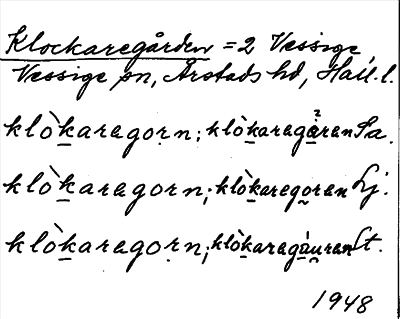 Klockaregården = 2 Vessige
Vessige sn, Årstads hd, Hall. l.
klòk̲aragoṛn; klòk̲aragåran Sa.
klòk̲aragorn; klòk̲aregoran Lj.
klòk̲aragoṛn; klòk̲aragåuran St.
1948